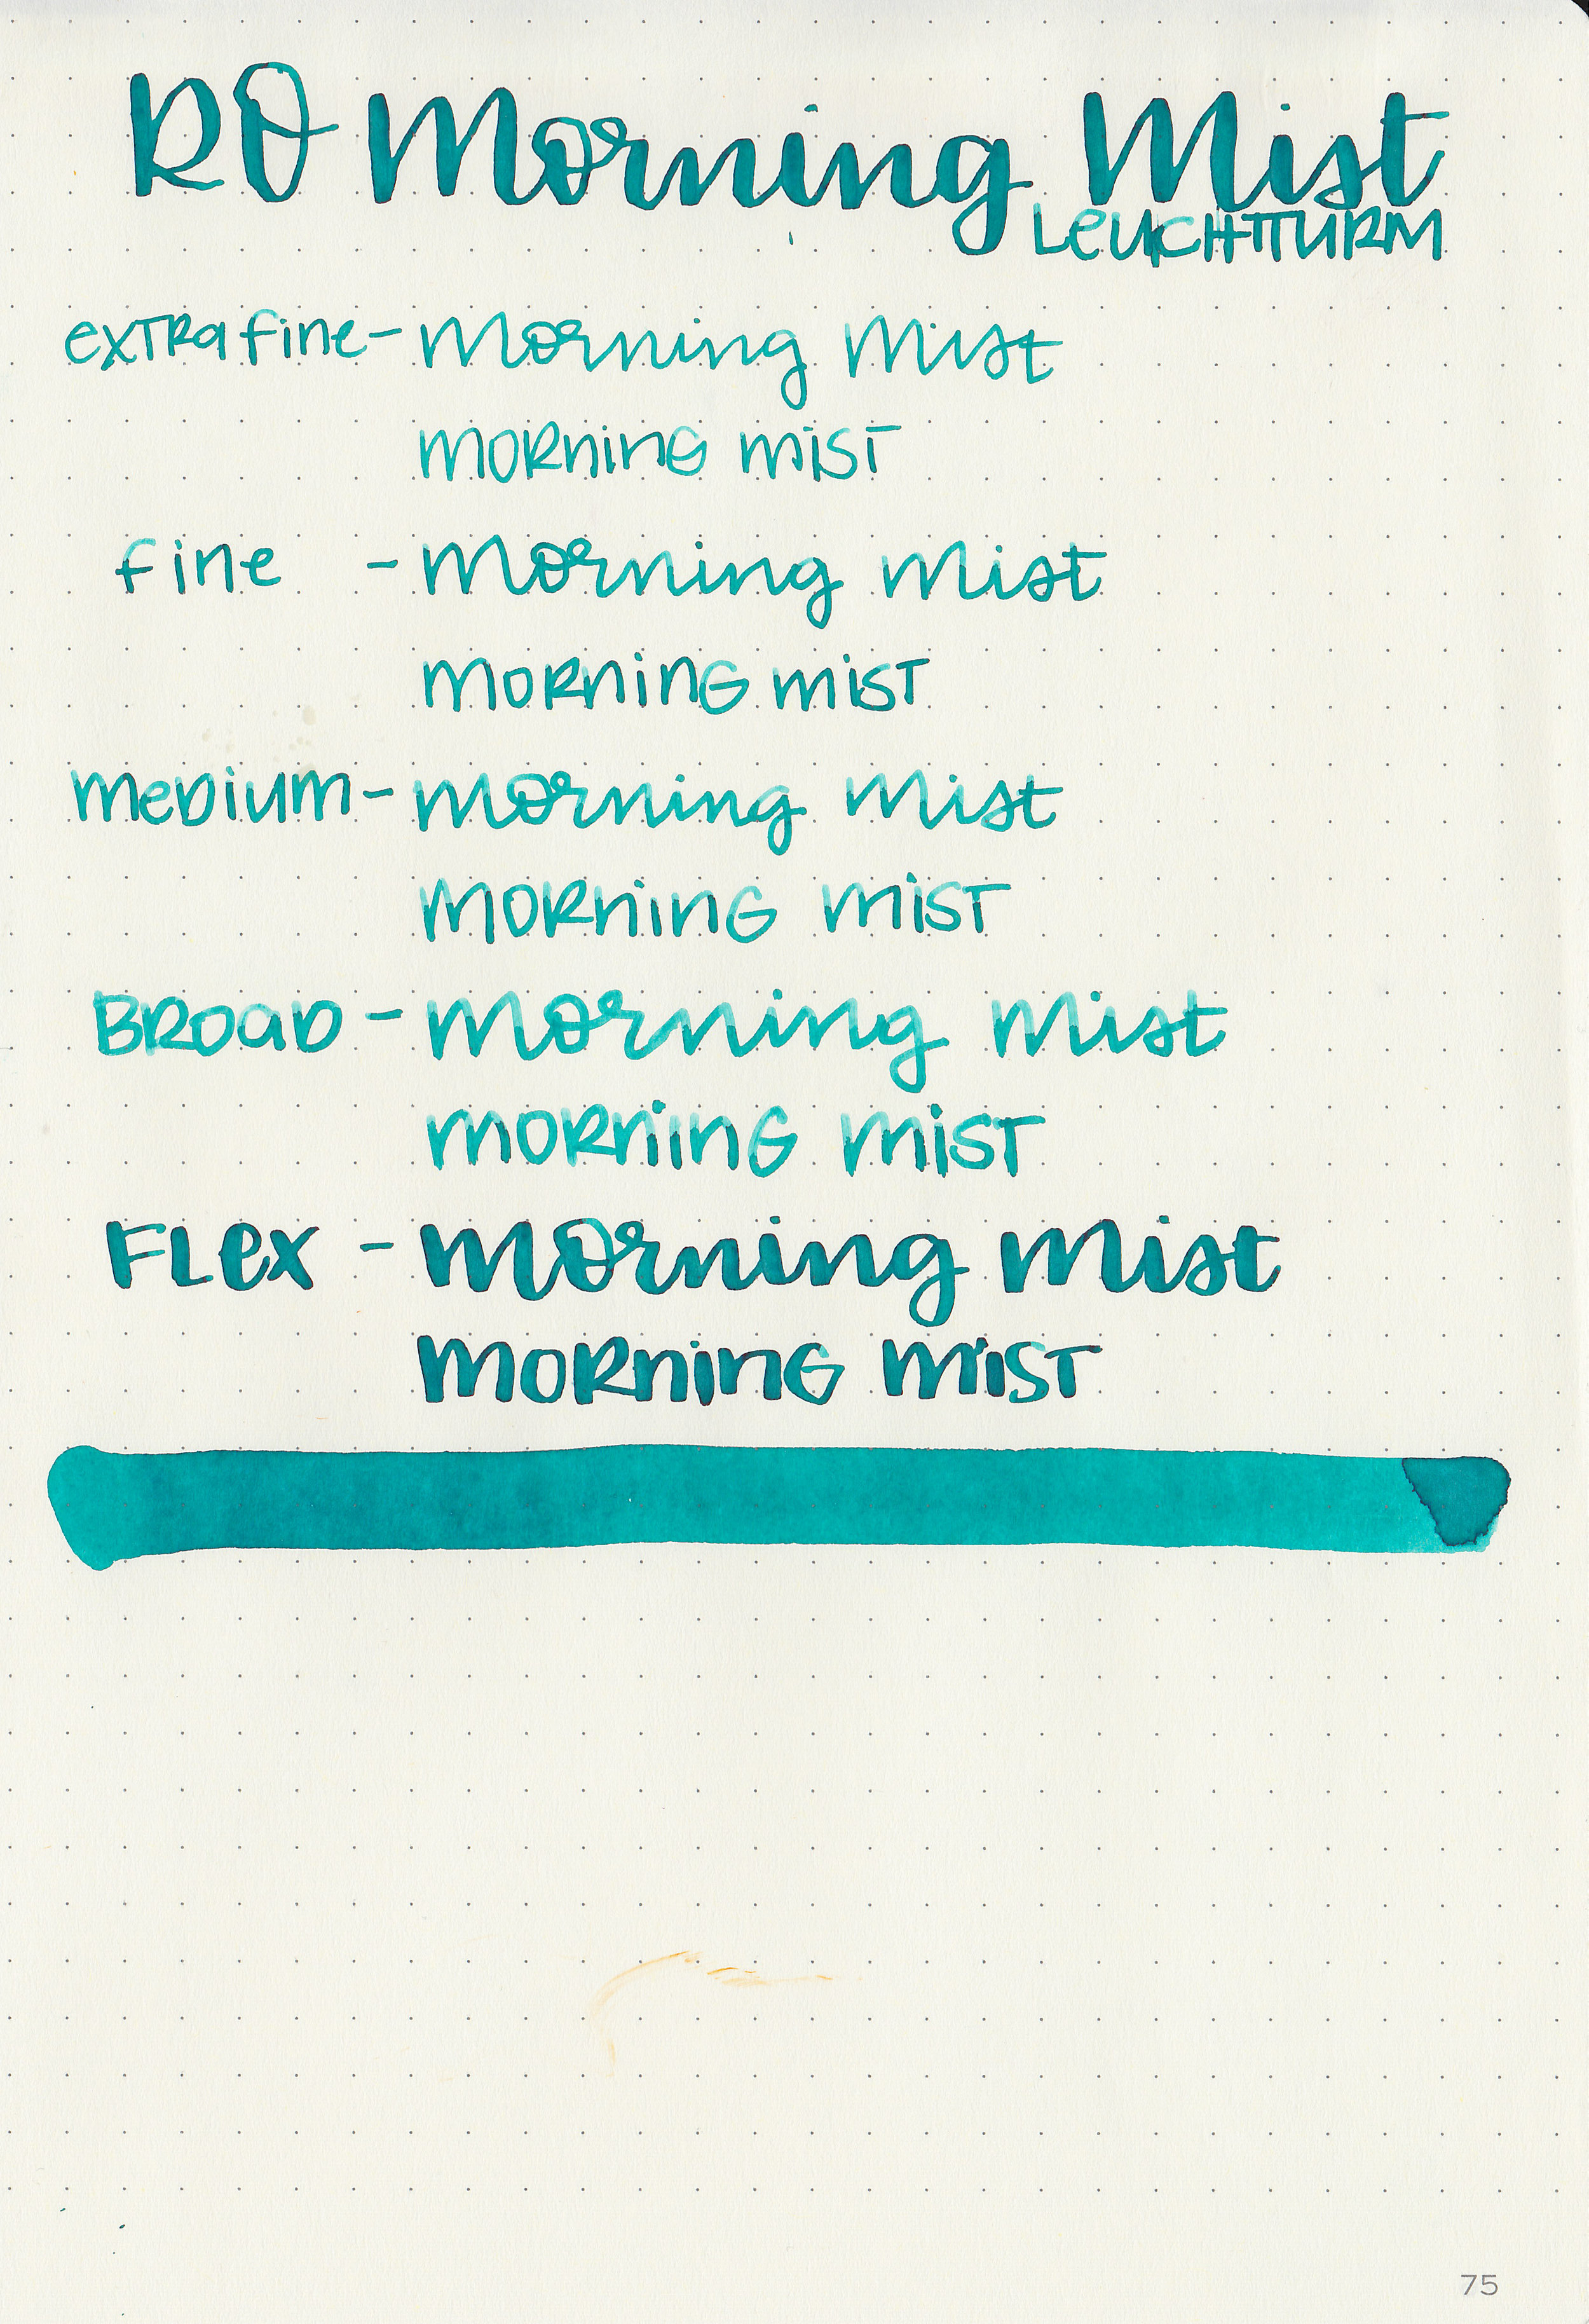 RO Morning Mist
LeUCHTTURM
exTRa fine - Morning Mist
MORning MiST
fine - Morning Mist
MORning MiST
meDium - Morning Mist
MORninG MiST
BROaD - Morning Mist
MORninG MiST
FLex - Morning Mist
MORninG MiST
75